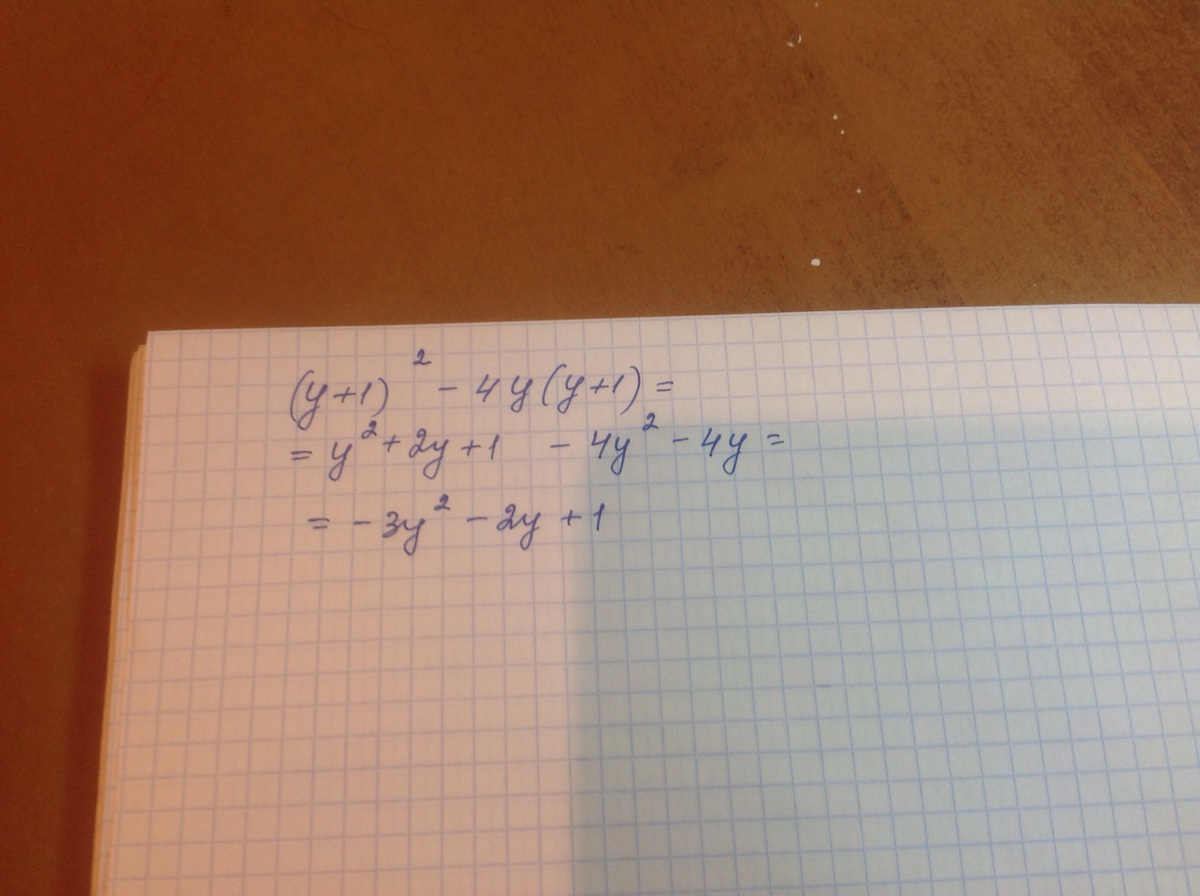 (y+1)² - 4y(y+1) =
= y² + 2y + 1 - 4y² - 4y =
= - 3y² - 2y + 1